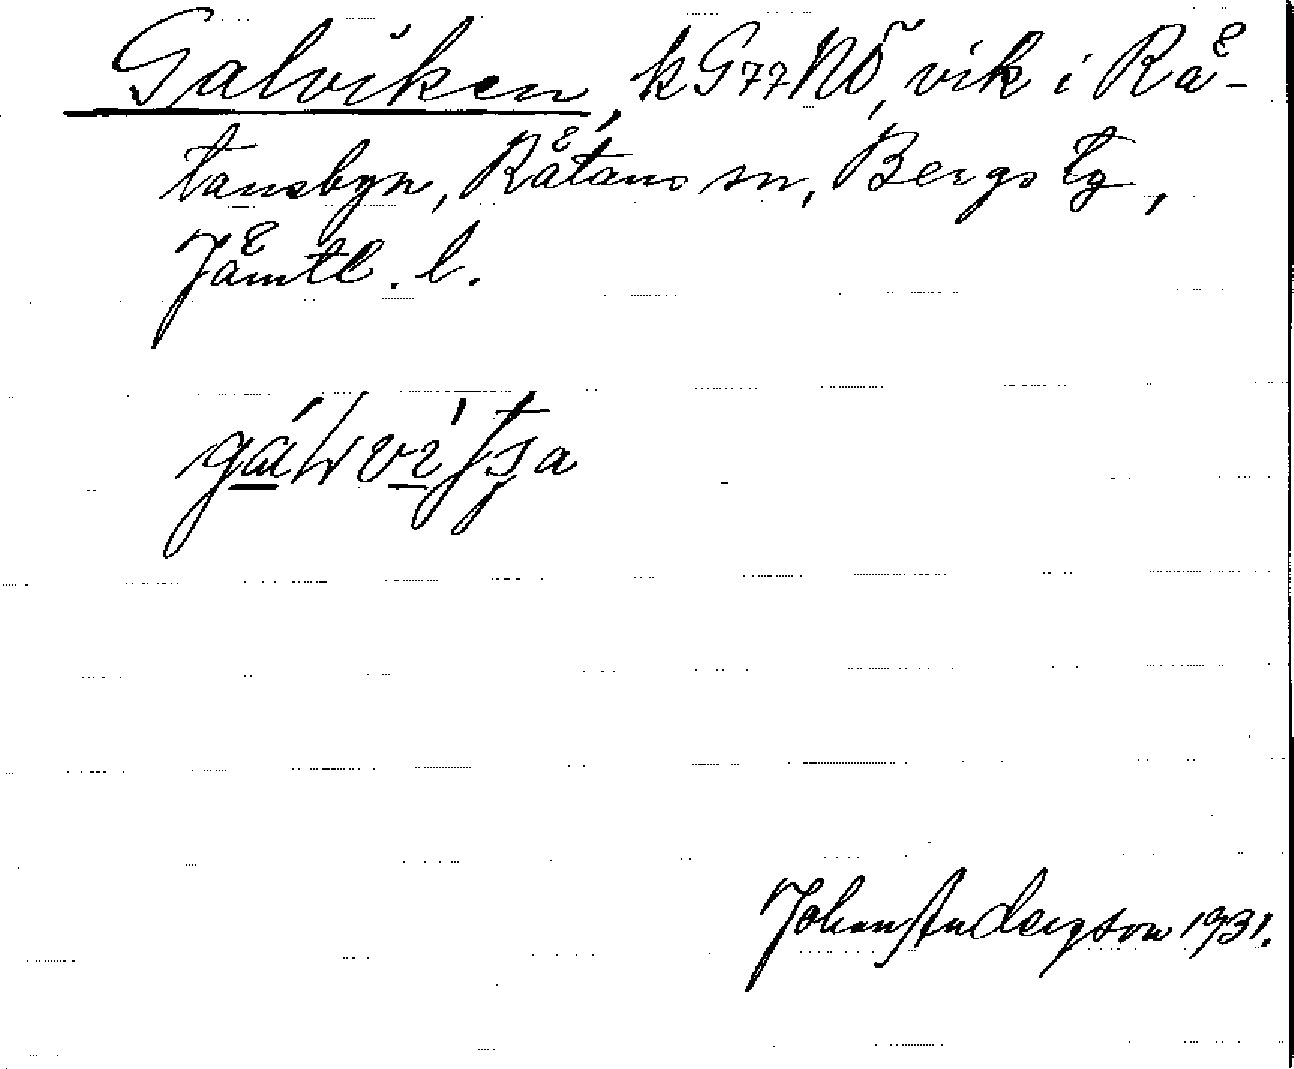 Galviken, k G77NÖ, vik i Rä-
tansbyn, Rätans sn, Bergs tg,
Jämtl. l.
Johan Andersson 1931.